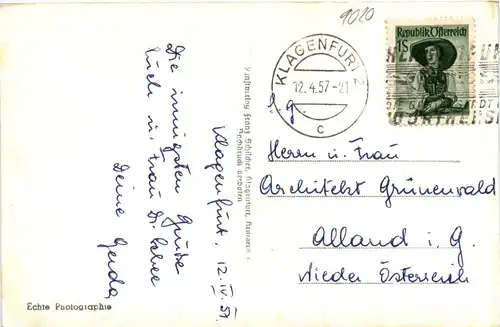 9020
Republik Österreich
1S
KLAGENFURT 2
12.4.57-21
C
Die innigsten Grüße
Euch u. Frau
Deine Gerda
Klagenfurt, 12.IV.57.
Klagenfurt,
S. g.
Herrn u. Frau
Architekt Grünewald
Alland i. G.
Nieder Österreich
Echte Photographie